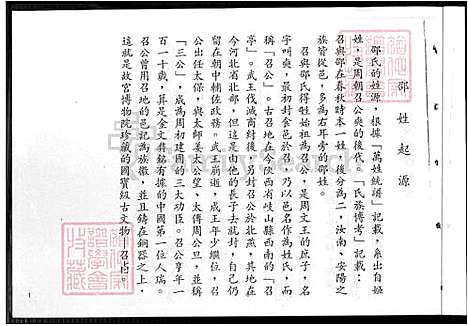 邵姓起源
邵氏的姓源，根據「萬姓統譜」記載，系出自姬
姓，是周朝召公奭的後代。「氏族博考」記載：
召與邵在春秋時本一姓，後分為二，汝南、安陽之
族皆從邑，多為有耳旁之邵姓。
召與邵氏得姓始祖為召公，是周文王的庶子，名
字叫奭，最初封食邑於召，乃以邑名作為姓氏，而
稱「召公」。古召地在今陝西省岐山縣西南的「召
亭」。武王伐滅商紂後，另封召公於北燕，其地在
今河北省北部，但這是由他的長子去就封，自己仍
留在朝中輔佐政務。武王崩逝，成王年少繼位，召
公出任太保，與太師姜太公望、太傅周公旦，並稱
「三公」，成為周初建國的三大功臣。召公享年一
百一十歲，算是全文鼎銘有據的中國第一位人瑞。
召公曾用召地的邑記為族徽，並且鑄在銅器之上，
這就是故宮博物院珍藏的國寶級古文物「召卣。
1